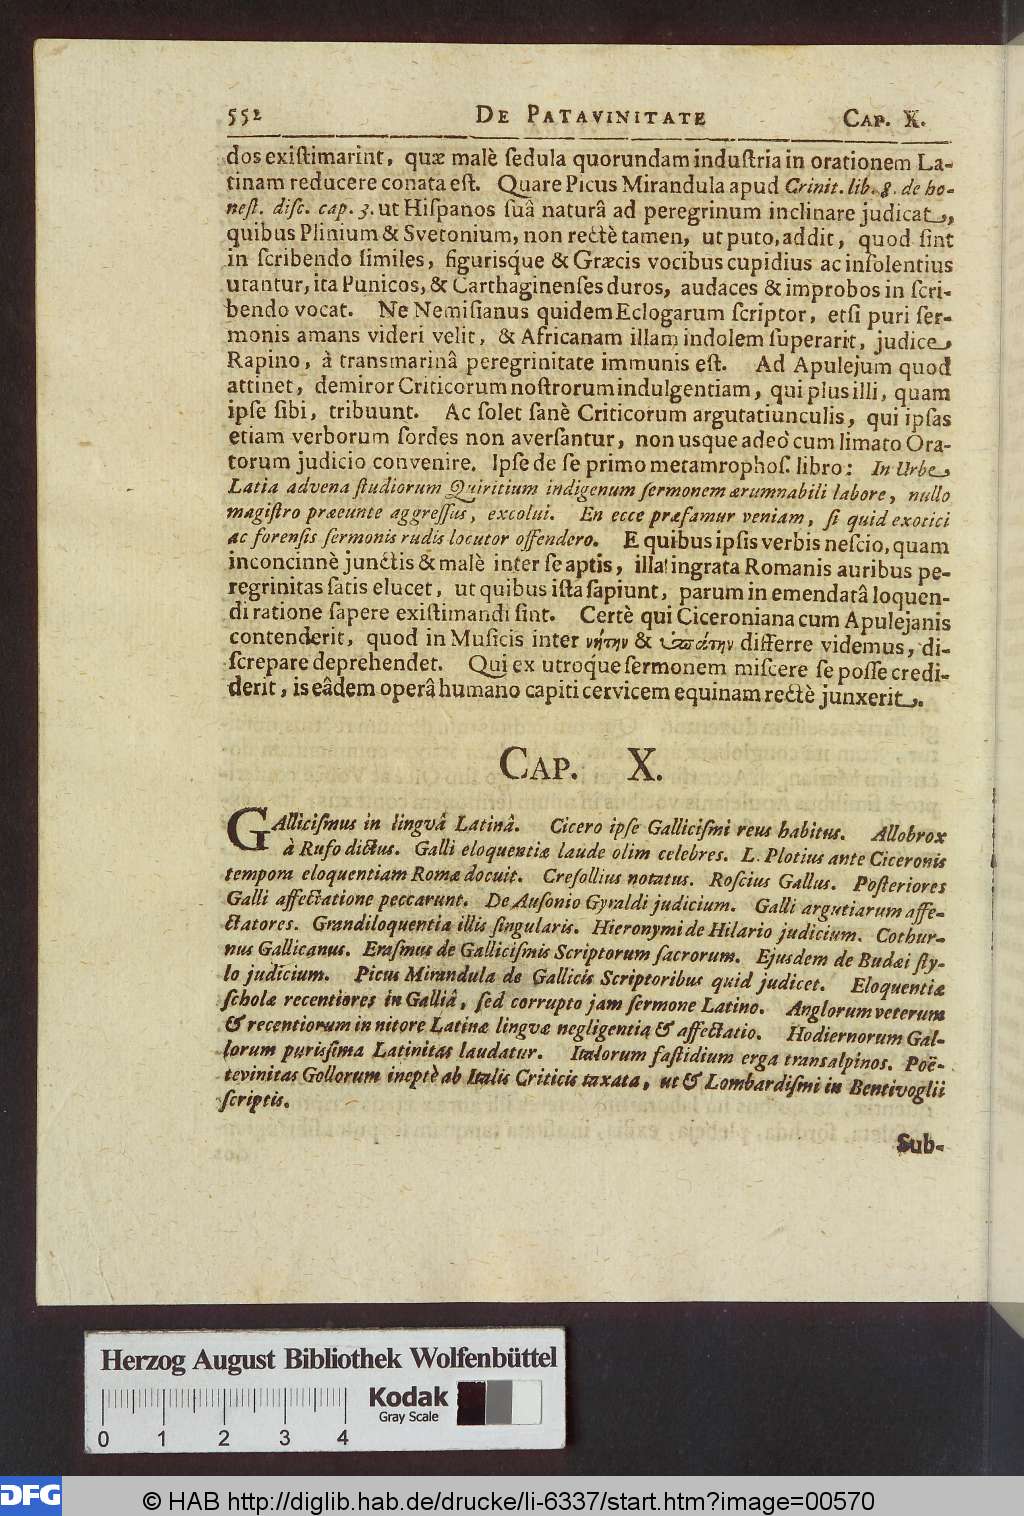 552 DE PATAVINITATE CAP. X.
dos exiſtimarint, quæ malè ſedula quorundam induſtria in orationem La-
tinam reducere conata eſt. Quare Picus Mirandula apud Crinit. lib. 8. de ho-
neſt. diſc. cap. 3. ut Hiſpanos ſuâ naturâ ad peregrinum inclinare judicat,
quibus Plinium & Svetonium, non rectè tamen, ut puto, addit, quod ſint
in ſcribendo ſimiles, figurisque & Græcis vocibus cupidius ac inſolentius
utantur, ita Punicos, & Carthaginenſes duros, audaces & improbos in ſcri-
bendo vocat. Ne Nemiſianus quidem Eclogarum ſcriptor, etſi puri ſer-
monis amans videri velit, & Africanam illam indolem ſuperarit, judice
Rapino, à transmarinâ peregrinitate immunis eſt. Ad Apulejum quod
attinet, demiror Criticorum noſtrorum indulgentiam, qui plus illi, quam
ipſe ſibi, tribuunt. Ac ſolet ſanè Criticorum argutatiunculis, qui ipſas
etiam verborum ſordes non averſantur, non usque adeò cum limato Ora-
torum judicio convenire. Ipſe de ſe primo metamrophoſ. libro: In Urbe
Latia advena ſtudiorum Quiritium indigenum ſermonem ærumnabili labore, nullo
magiſtro præeunte aggreſſus, excolui. En ecce præfamur veniam, ſi quid exotici
ac forenſis ſermonis rudis locutor offendero. E quibus ipſis verbis neſcio, quam
inconcinnè junctis & malè inter ſe aptis, illa ingrata Romanis auribus pe-
regrinitas ſatis elucet, ut quibus iſta ſapiunt, parum in emendatâ loquen-
di ratione ſapere exiſtimandi ſint. Certè qui Ciceroniana cum Apulejanis
contenderit, quod in Muſicis inter νήτην & ὑπάτην differre videmus, di-
ſcrepare deprehendet. Qui ex utroque ſermonem miſcere ſe poſſe credi-
derit, is eâdem operâ humano capiti cervicem equinam rectè junxerit.
CAP. X.
GAlliciſmus in linguâ Latinâ. Cicero ipſe Galliciſmi reus habitus. Allobrox
à Rufo dictus. Galli eloquentiæ laude olim celebres. L. Plotius ante Ciceronis
tempora eloquentiam Romæ docuit. Creſollius notatus. Roſcius Gallus. Poſteriores
Galli affectatione peccarunt. De Auſonio Gyraldi judicium. Galli argutiarum affe-
ctatores. Grandiloquentia illis ſingularis. Hieronymi de Hilario judicium. Cothur-
nus Gallicanus. Eraſmus de Galliciſmis Scriptorum ſacrorum. Ejusdem de Budæi ſty-
lo judicium. Picus Mirandula de Gallicis Scriptoribus quid judicet. Eloquentiæ
ſcholæ recentiores in Galliâ, ſed corrupto jam ſermone Latino. Anglorum veterum
& recentiorum in nitore Latinæ linguæ negligentia & affectatio. Hodiernorum Gal-
lorum puriſſima Latinitas laudatur. Italorum faſtidium erga transalpinos. Poë-
tevinitas Gollorum ineptè ab Italis Criticis taxata, ut & Lombardiſmi in Bentivoglii
ſcriptis.
Sub-
Herzog August Bibliothek Wolfenbüttel
Kodak
Gray Scale
0 1 2 3 4
DFG © HAB http://diglib.hab.de/drucke/li-6337/start.htm?image=00570